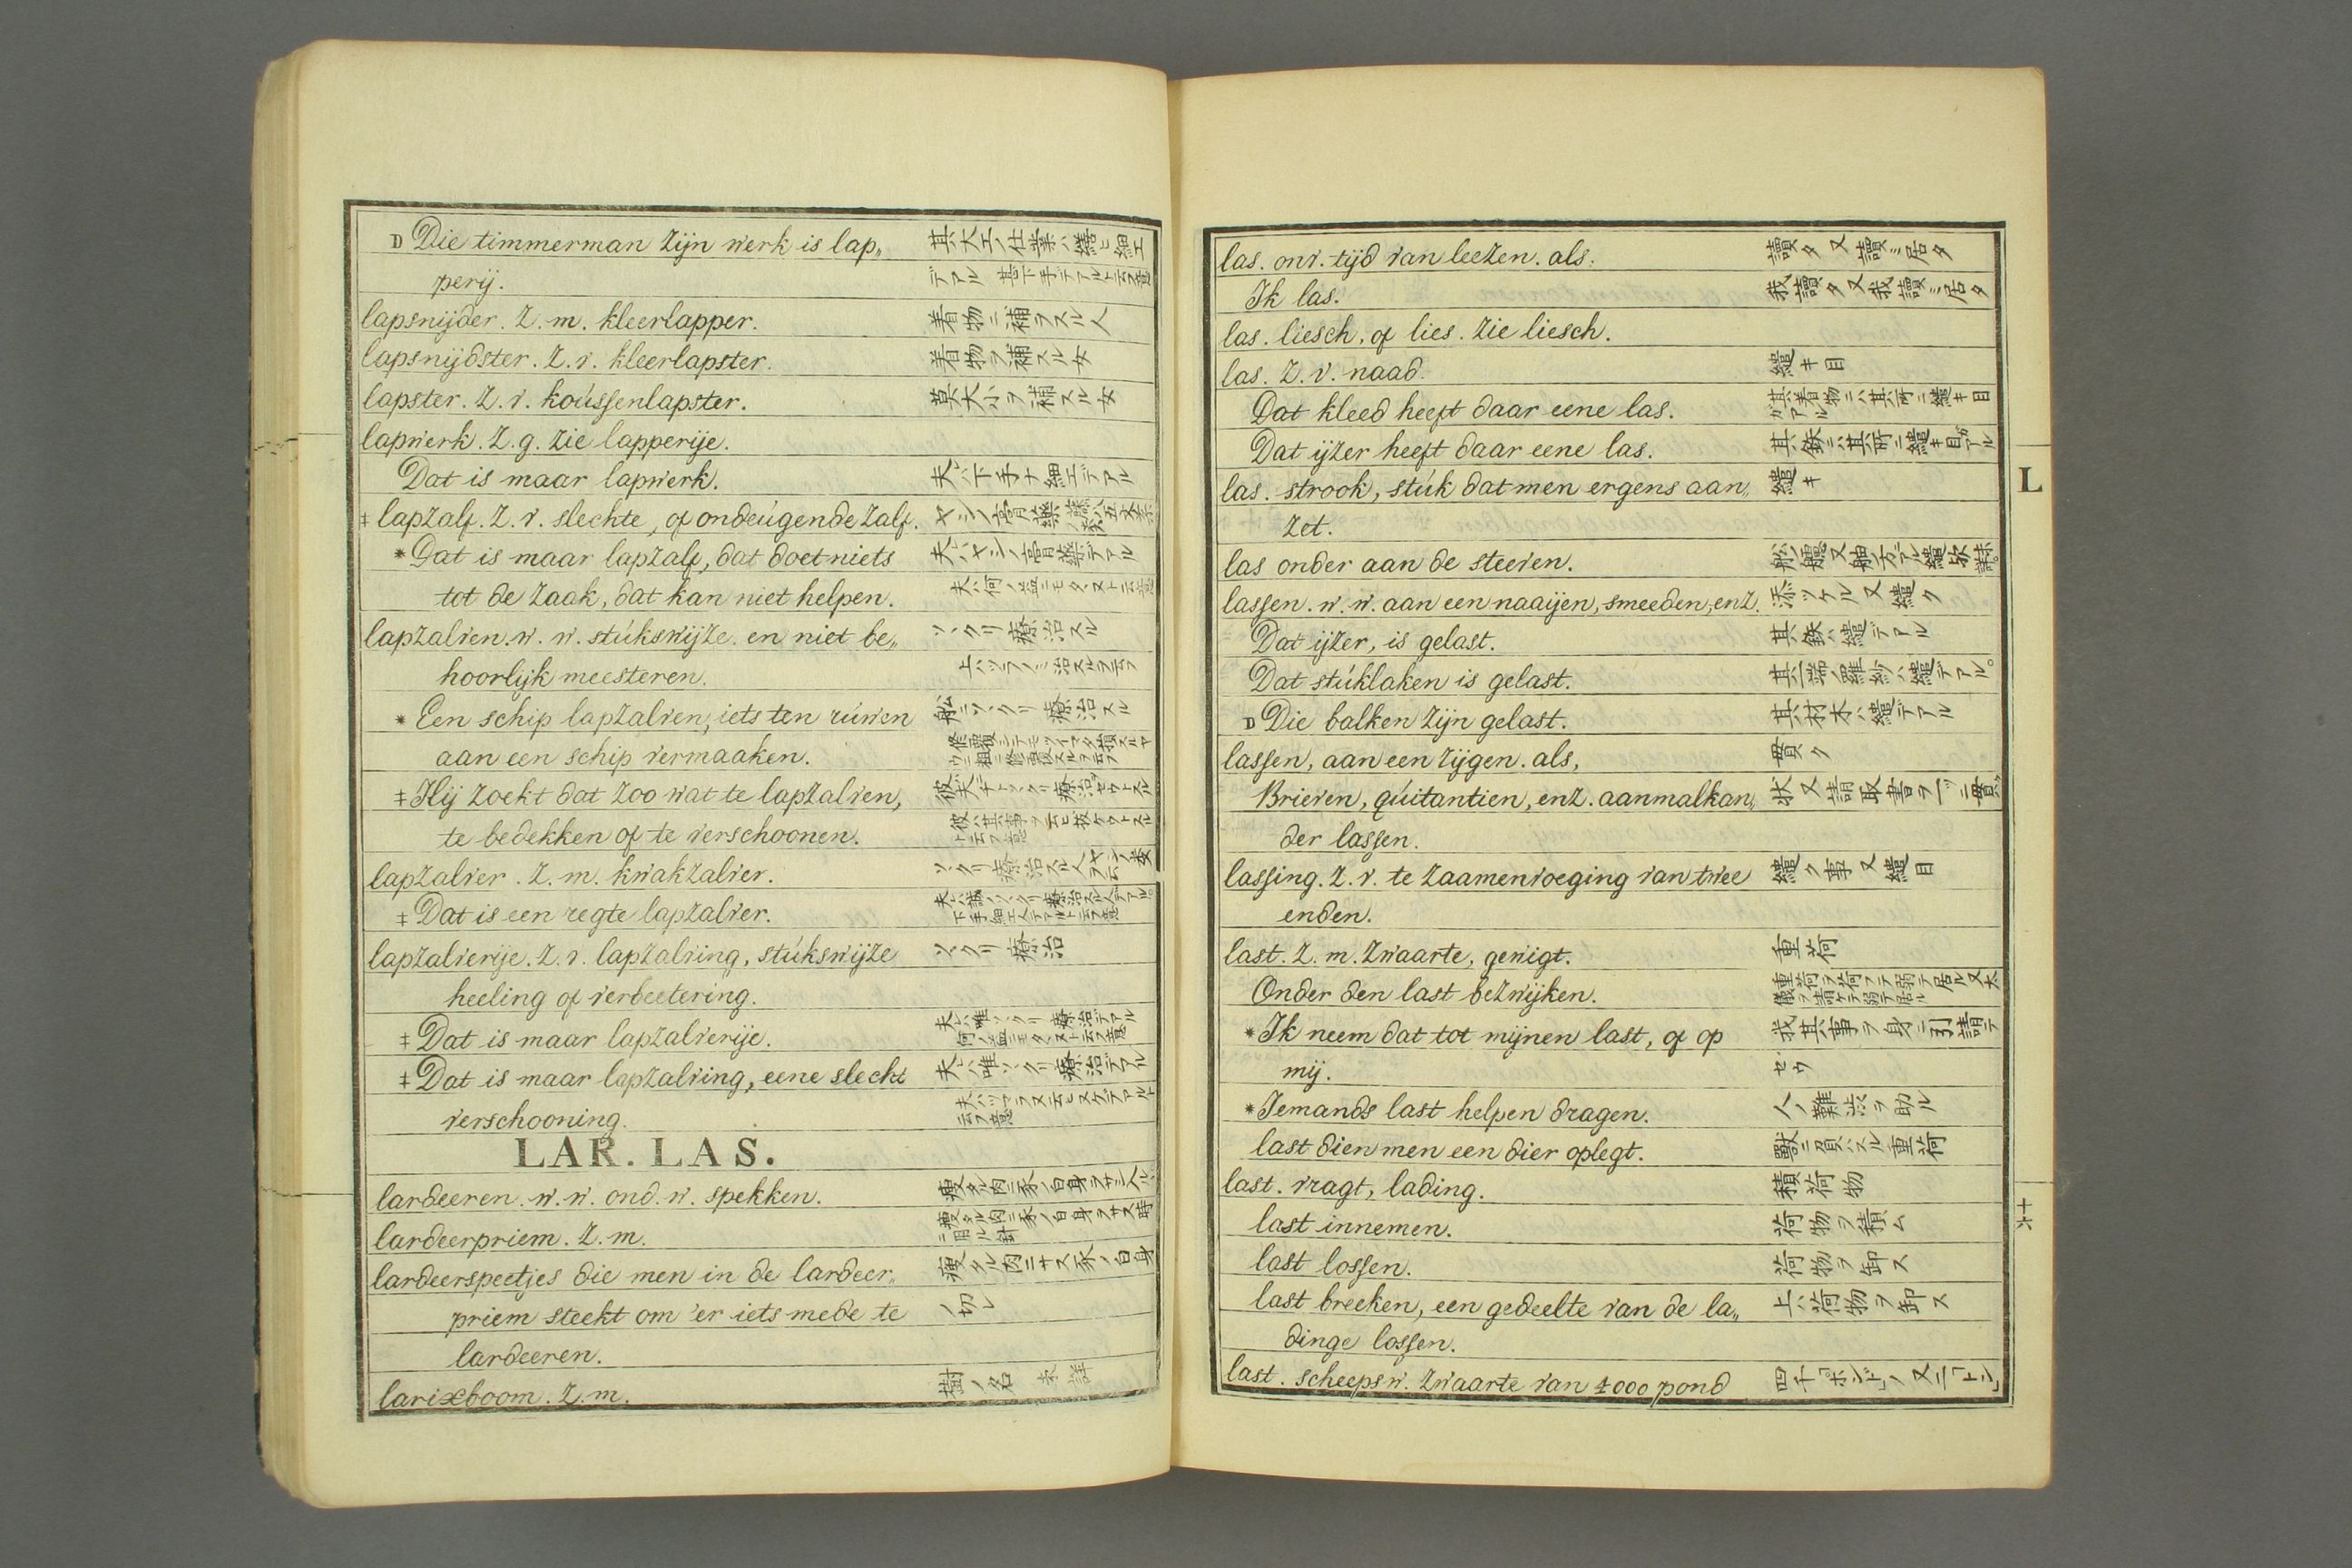 D Die timmerman zijn werk is lap„ 其大工ノ仕業ハ繕ヒ細工
perij. デアル 甚下手デアルト云フ意
lapsnijder. z. m. kleerlapper. 着物ニ補ヲスル人
lapsnijdster. z. v. kleerlapster. 着物ヲ補スル女
lapster. z. v. koússenlapster. 莫大小ヲ補スル女
lapwerk. z. g. zie lapperije.
Dat is maar lapwerk. 夫ハ下手ナ細工デアル
‡ lapzalf. z. v. slechte, of ondeúgende zalf. ヤシノ膏薬
* Dat is maar lapzalf, dat doet niets 夫ハヤシノ膏薬デアル
tot de zaak, dat kan niet helpen. 夫ハ何ノ益ニモタヽヌト云フ意
lapzalven. w. w. stúkswijze en niet be„ ソヽクリ療治スル
hoorlijk meesteren.
* Een schip lapzalven, iets ten rúwen 舩ニソヽクリ療治スル
aan een schip vermaaken.
‡ Hij zoekt dat zoo wat te lapzalven,
te bedekken of te verschoonen. 彼ハ其事ヲ云ヒ抜ケウトスルト云フ意
lapzalver. z. m. kwakzalver.
‡ Dat is een regte lapzalver.
lapzalverije. z. v. lapzalving, stúkswijze ソヽクリ療治
heeling of verbeetering.
‡ Dat is maar lapzalverije. 夫ハ唯ソヽクリ療治デアル 何ノ益ニモタヽヌト云フ意
‡ Dat is maar lapzalving, eene slecht 夫ハ唯ソヽクリ療治デアル
verschooning.
LAR. LAS.
lardeeren. w. w. ond. w. spekken. 痩タル肉ニ豕ノ白身ヲサシ入ル
lardeerpriem. z. m. 痩タル肉ニ豕ノ白身ヲサス時ニ用ル針
lardeerspeetjes die men in de lardeer„ 痩タル肉ニサス豕ノ白身
priem steekt om 'er iets mede te ノ切レ
lardeeren.
larixboom. z. m. 樹ノ名 未詳
las. onv. tijd van leezen. als: 讀タ又讀ミ居タ
Ik las. 我讀タ又我讀ミ居タ
las. liesch, of lies. zie liesch.
las. z. v. naad. 繼キ目
Dat kleed heeft daar eene las. 其着物ニハ其所ニ繼キ目ガアル
Dat ijzer heeft daar eene las. 其鉄ニハ其所ニ繼キ目ガアル
las. strook, stúk dat men ergens aan„ 繼キ
zet.
las onder aan de steeven.
lassen. w. w. aan een naaijen, smeeden, enz. 添ツケル又繼ク
Dat ijzer, is gelast. 其鉄ハ繼デアル
Dat stúk laken is gelast. 其一端ノ羅紗ハ繼デアル。
D Die balken zijn gelast. 其材木ハ繼デアル
lassen, aan een rijgen. als, 貫ク
Brieven, qúitantien, enz. aan malkan„ 状又請取書ヲ一ツニ貫ク
der lassen.
lassing. z. v. te zaamenvoeging van twee 繼ク事又繼目
enden.
last. z. m. zwaarte, gewigt. 重荷
Onder den last bezwijken.
* Ik neem dat tot mijnen last, of op 我其事ヲ身ニ引請テ
mij. ゼウ
* Iemands last helpen dragen. 人ノ難渋ヲ助ル
last dien men een dier oplegt. 獸ニ負ハスル重荷
last. vragt, lading. 積荷物
last innemen. 荷物ヲ積ム
last lossen. 荷物ヲ卸ス
last breeken, een gedeelte van de la„ 上ハ荷物ヲ卸ス
dinge lossen.
last. scheepsw. zwaarte van 4000 pond 四千「ポンド」ノ又二「トン」
L
十六